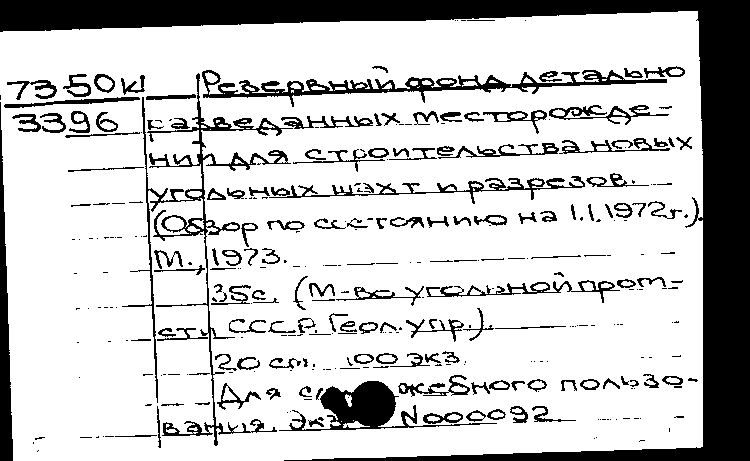 73-50к Резервный фонд детально
3396 разведанных месторожде-
ний для строительства новых
угольных шахт и разрезов.
(Обзор по состоянию на 1.I.1972г.).
М., 1973.
35с. (М-во угольной пром-
сти СССР. Геол. упр.).
20 см. 100 экз.
Для пользо-
вания. Экз. N000092.